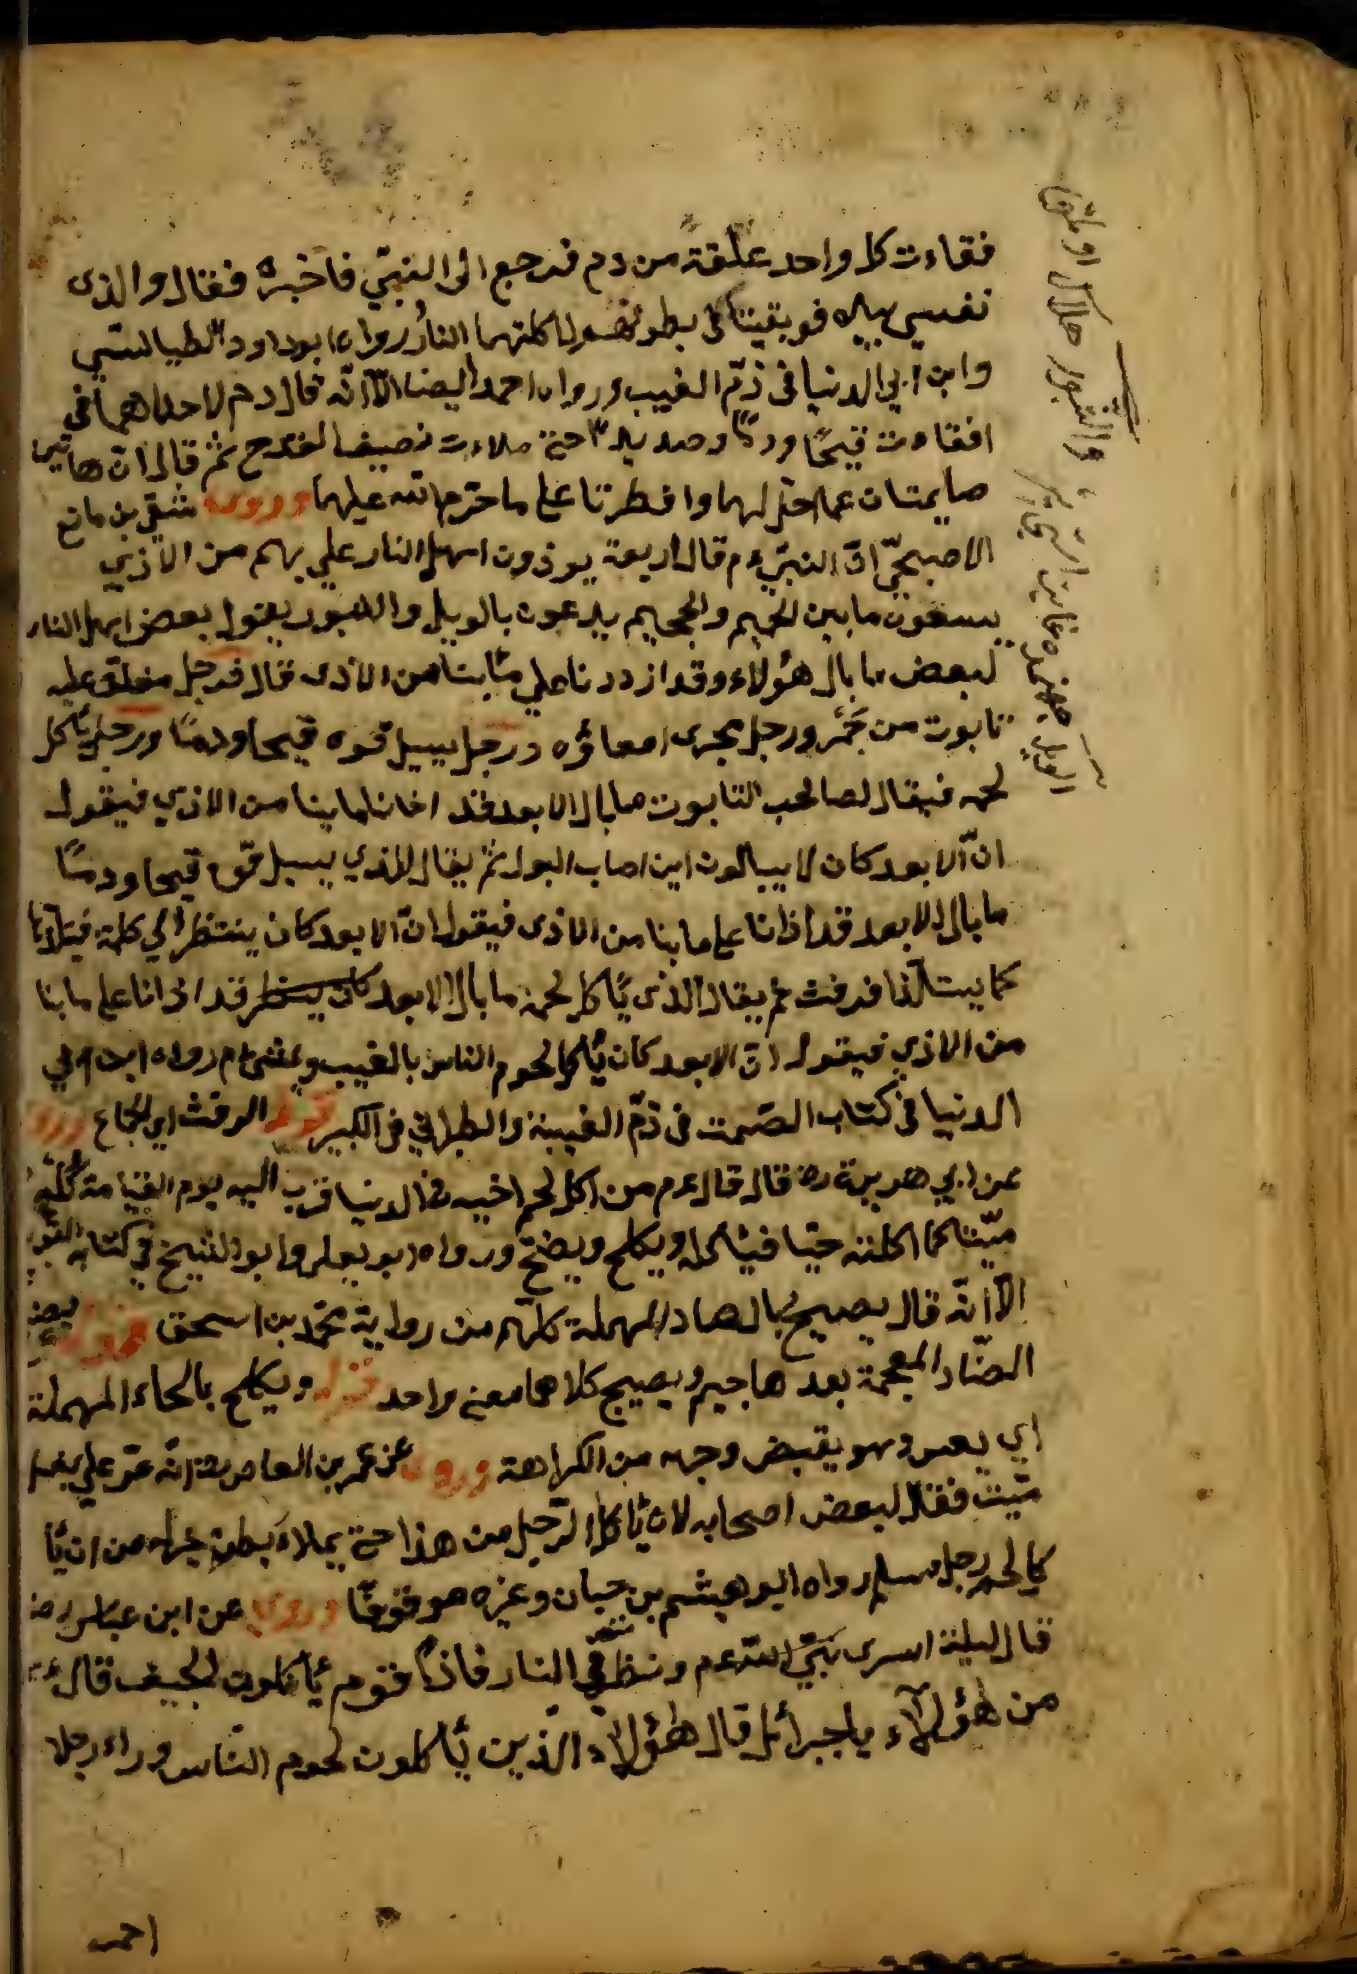 فقاءت كل واحد علقة من دم فرجع الى النبيّ فاخبره فقال والذى
نفسي بيده لوبقيتا في بطونهما لاكلتهما النارُ رواه ابو داود الطيالسي
وابن ابي الدنيا فى ذمّ الغيب ورواه احمد ايضا الّا انّه قال دم لاحداهما قى
افقاءت قيحًا ودمًا وصديدا حتى ملاءت نصيف القدح ثمّ قال انّ هاتين
صايمتان عما احل لهما وافطرتا على ما حرّم الله عليهما وروى شقى بن ماتع
الاصبحيّ انّ النبيّ عم قال اربعة يوذون اهل النار علي بهم من الاذي
يسعون مابين الحميم والجحيم يدعون بالويل والثبور يقول بعض اهل النار
لبعض ما بال هؤلاء وقد ازددنا علي مابنا من الاذى قال فرجل مغلق عليه
تابوت من جَمْر ورجل يجرى امعاؤه ورجل يسيل قوه قيحا ودمًا ورجل يأكل
لحمه فيقال لصاحب التابوت ما بال الابعد قد اذانا لما بنا من الاذي فيقول
انّ الابعد كان لا يبالون اين اصاب البول ثمّ يقال للذي يسيل قوه قيحا ودمًا
ما بال الابعد قد اذانا على ما بنا من الاذى فيقول انّ الابعد كان ينتظر الي كلمة فيتلذّنا
كما يستلّذا فرفث ثم يقال الّذى يأكل لحمه ما بال الابعد كان ينظر قد اذانا على ما بنا
من الاذي فيقول انّ الابعد كان يأكل لحوم الناس بالغيب ويمشي م رواه ابن ابي
الدنيا فى كتاب الصّمت فى ذمّ الغيبة والطبراني فى الكبير قوله الرفث اي الجماع وروى
عن ابي هريرة رضه قال قال عم من اكل لحم اخيه فى الدنيا قرب اليه يوم القيامة
ميّتا كما اكلته حيّا فيأكله ويكلح ويضج ورواه ابو يعلى وابو الشيخ في كتابه
الّا انّه قال يصيح بالصاد المهملة كلّهم من رواية محمّد بن اسحق قوله يضج
الضّاد المعجمة بعد هاجيم ويصيح كلاهما معنى واحد قوله ويكلح بالحاء المهملة
اي يعبس وهو يقبض وجهه من الكراهة وروى عن عمر بن العاص رضه انّه مرّ علي بغل
ميّت فقال لبعض اصحابه لان يأكل الرّجل من هذا حتى يملاء بطنه خير له من ان يأ
كل لحم رجل مسلم رواه ابو هيشم بن حبان وغيره موقوفًا وروى عن ابن عباس رضه
قال ليلة اسرى نبيّ الله عم ونظر في النار فاذا قوم يأكلون الجيف قال
من هؤلآء ياجبرائل قال هؤلآء الّذين يأكلون لحوم النّاس وراء رجلا
احمر